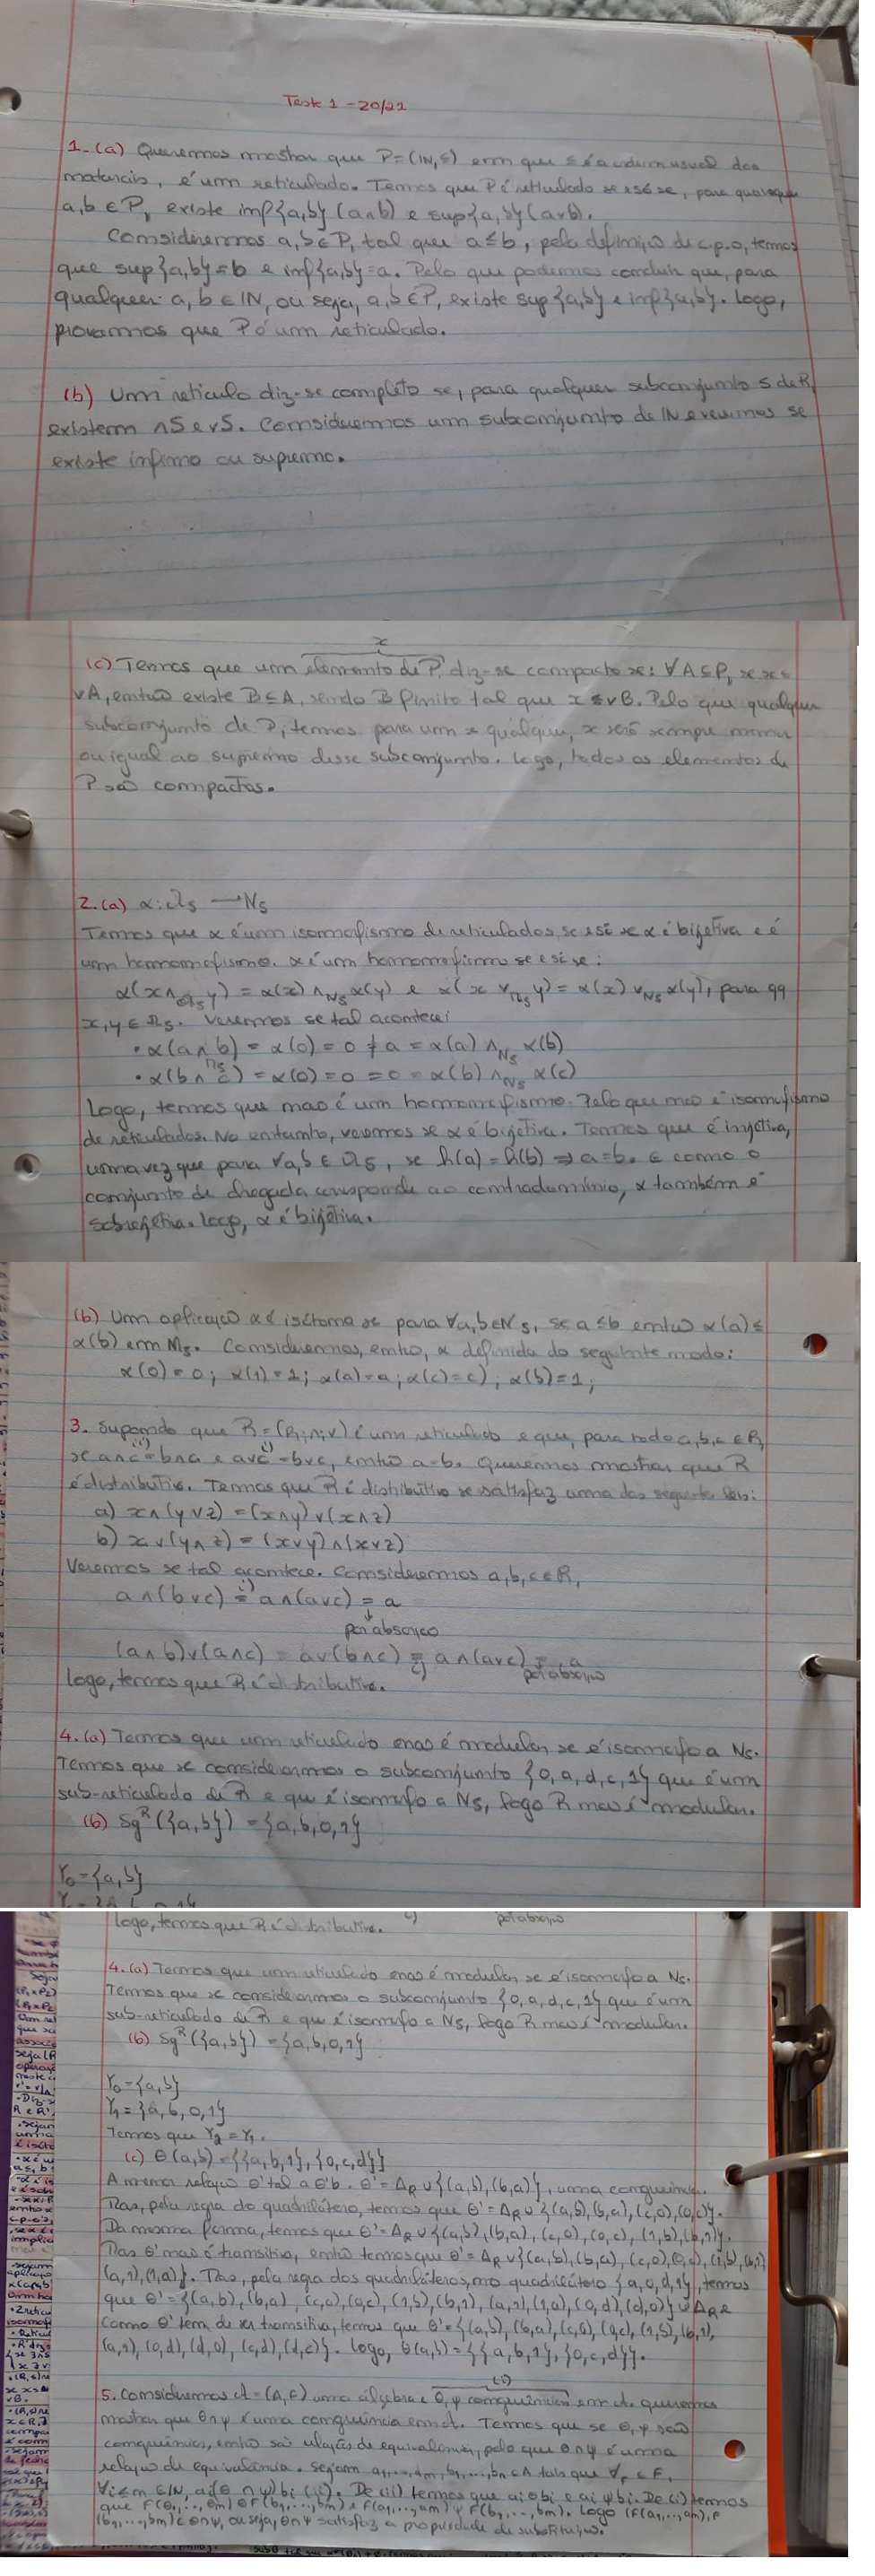 Teste 1 - 20/21
1. (a) Queremos mostrar que P=(IN,≤) em que ≤ é a ordem usual dos
naturais, é um reticulado. Temos que P é reticulado se e só se, para quaisquer
a,b ∈ P, existe inf{a,b} (a∧b) e sup{a,b} (a∨b).
Consideremos a,b ∈ P, tal que a ≤ b, pela definição de c.p.o, temos
que sup{a,b} = b e inf{a,b} = a. Pelo que podemos concluir que, para
qualquer a, b ∈ IN, ou seja, a,b ∈ P, existe sup{a,b} e inf{a,b}. Logo,
provamos que P é um reticulado.
(b) Um retículo diz-se completo se, para qualquer subconjunto S de R,
existem ∧S e ∨S. Consideremos um subconjunto de IN e veremos se
existe ínfimo ou supremo.
x
(c) Temos que um elemento de P, diz-se compacto se: ∀A⊆P, se x ≤
∨A, então existe B⊆A, sendo B finito tal que x ≤ ∨B. Pelo que qualquer
subconjunto de P, temos para um x qualquer, x será sempre menor
ou igual ao supremo desse subconjunto. Logo, todos os elementos de
P são compactos.
2. (a) α: → N5
Temos que α é um isomorfismo de reticulados, se e só se α é bijetiva e é
um homomorfismo. α é um homomorfismo se e só se:
α(x ∧ y) = α(x) ∧N5 α(y) e α(x ∨ y) = α(x) ∨N5 α(y), para qq
x,y ∈ . Veremos se tal acontece:
• α(a ∧ b) = α(0) = 0 ≠ a = α(a) ∧N5 α(b)
• α(b ∧ c) = α(0) = 0 = 0 = α(b) ∧N5 α(c)
Logo, temos que não é um homomorfismo. Pelo que não é isomorfismo
de reticulados. No entanto, veremos se α é bijetiva. Temos que é injetiva,
uma vez que para ∀a,b ∈ , se h(a) = h(b) ⇒ a=b. E como o
conjunto de chegada corresponde ao contradomínio, α também é
sobrejetiva. Logo, α é bijetiva.
(b) Um aplicação α é isótona se para ∀a,b∈N5, se a ≤ b então α(a) ≤
α(b) em M5. Consideremos, então, α definida do seguinte modo:
α(0) = 0; α(1) = 1; α(a) = a; α(c) = c; α(b) = 1;
3. Supondo que R = (R;∧;∨) é um reticulado e que, para todo a,b,c ∈ R,
se a∧c = b∧c e a∨c = b∨c, então a=b. Queremos mostrar que R
é distributivo. Temos que R é distributivo se satisfaz uma das seguintes leis:
a) x∧(y∨z) = (x∧y)∨(x∧z)
b) x∨(y∧z) = (x∨y)∧(x∨z)
Veremos se tal acontece. Consideremos a,b,c ∈ R,
a∧(b∨c) = a∧(a∨c) = a
por absorção
(a∧b)∨(a∧c) = a∨(b∧c) = a∧(a∨c) = a
por absorção
Logo, temos que R é distributivo.
4. (a) Temos que um reticulado é não é modular se é isomorfo a N5.
Temos que se considerarmos o subconjunto {0, a, d, c, 1} que é um
sub-reticulado de R e que é isomorfo a N5, logo R não é modular.
(b) Sg^R({a,b}) = {a,b,0,1}
Y0 = {a,b}
logo, temos que R é distributivo.
por absorção
4. (a) Temos que um reticulado é não é modular se é isomorfo a N5.
Temos que se considerarmos o subconjunto {0, a, d, c, 1} que é um
sub-reticulado de R e que é isomorfo a N5, logo R não é modular.
(b) Sg^R({a,b}) = {a,b,0,1}
Y0 = {a,b}
Y1 = {a,b,0,1}
Temos que Y2 = Y1.
(c) Θ(a,b) = {{a,b,1}, {0,c,d}}
A menor relação θ' tal a θ' b. θ' = ΔR ∪ {(a,b), (b,a)}, uma congruência.
Mas, pela regra do quadrilátero, temos que θ' = ΔR ∪ {(a,b), (b,a), (c,0), (0,c)}.
Da mesma forma, temos que θ' = ΔR ∪ {(a,b), (b,a), (c,0), (0,c), (1,b), (b,1)}.
Mas θ' não é transitiva, então temos que θ' = ΔR ∪ {(a,b), (b,a), (c,0), (0,c), (1,b), (b,1)
(a,1), (1,a)}. Mas, pela regra dos quadriláteros, no quadrilátero {a,0,d,1}, temos
que θ' = {(a,b), (b,a), (c,0), (0,c), (1,b), (b,1), (a,1), (1,a), (0,d), (d,0)} ∪ ΔR e
como θ' tem de ser transitiva, temos que θ' = {(a,b), (b,a), (c,0), (0,c), (1,b), (b,1),
(a,1), (0,d), (d,0), (c,d), (d,c)}. Logo, Θ(a,b) = {{a,b,1}, {0,c,d}}.
(i)
5. Consideremos A = (A,F) uma álgebra e θ, ψ congruências em A. queremos
mostrar que θ∩ψ é uma congruência em A. Temos que se θ, ψ são
congruências, então são relações de equivalência, pelo que θ∩ψ é uma
relação de equivalência. Sejam a1,...,an, b1,...,bn ∈ A tais que ∀f ∈ F,
∀i≤n ∈ IN, ai (θ ∩ ψ) bi (ii). De (ii) temos que ai θ bi e ai ψ bi. De (i) temos
que F(a1,...,an) θ F(b1,...,bn) e F(a1,...,an) ψ F(b1,...,bn). Logo (F(a1,...,an), F
(b1,...,bn) ∈ θ∩ψ, ou seja, θ∩ψ satisfaz a propriedade de substituição.